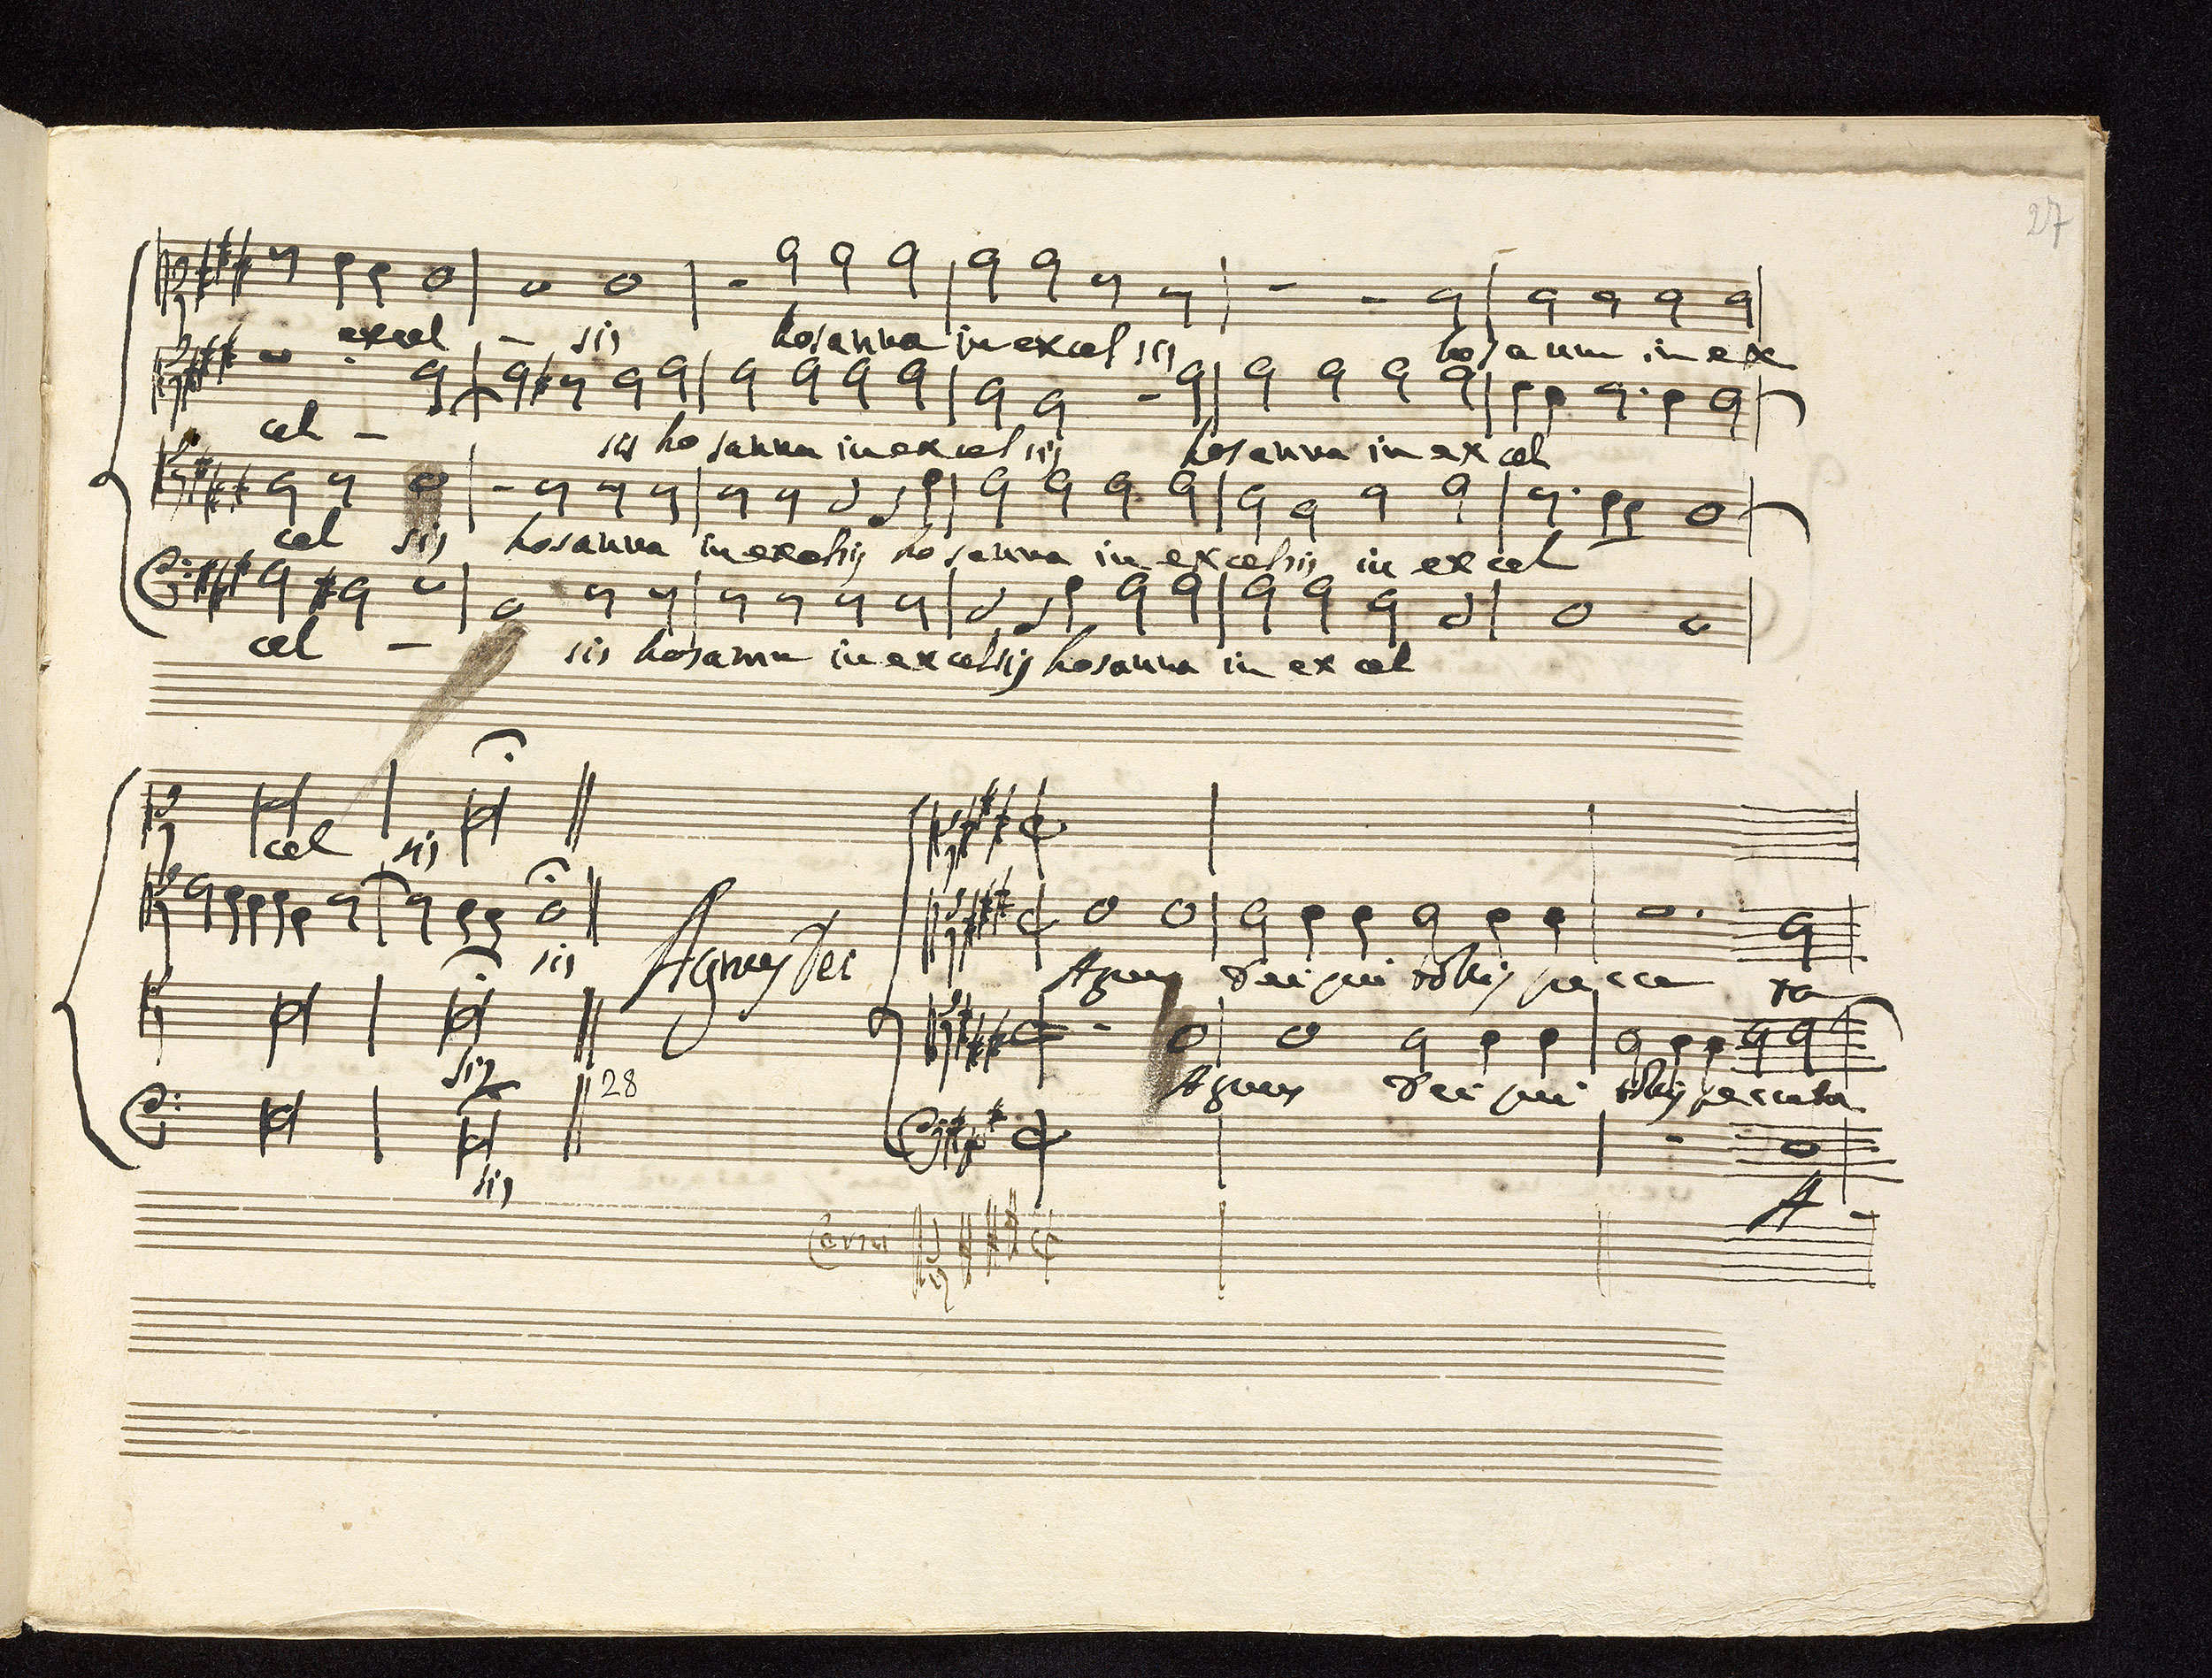 27
excel - sis hosanna in excel sis hosanna in ex
cel - sis hosanna in excel sis hosanna in excel
cel sis hosanna in excelsis hosanna in excelsis in excel
cel - sis hosanna in excelsis hosanna in excel
cel sis
sis
Agnus Dei
Agnus Dei qui tollis pecca ta
sis
28
Agnus Dei qui tollis peccata
sis
A -